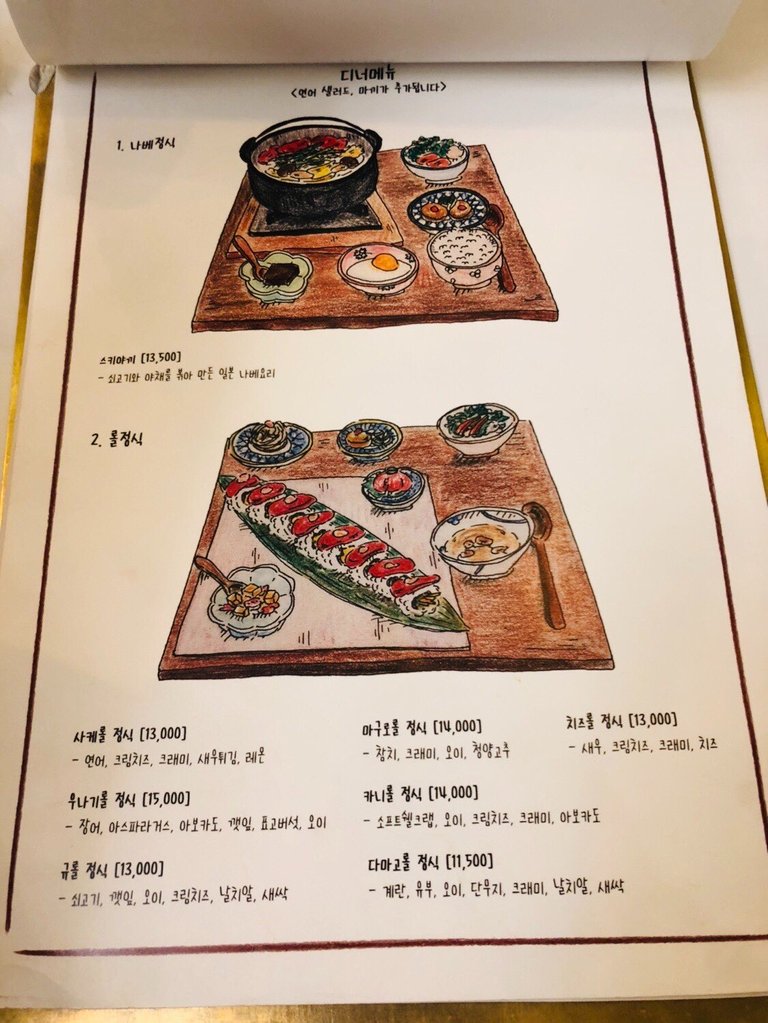 디너메뉴
<연어 샐러드, 마끼가 추가됩니다>
1. 나베정식
스키야끼 [13,500]
- 쇠고기와 야채를 볶아 만든 일본 나베요리
2. 롤정식
사케롤 정식 [13,000]
- 연어, 크림치즈, 크래미, 새우튀김, 레몬
마구로롤 정식 [14,000]
- 참치, 크래미, 오이, 청양고추
치즈롤 정식 [13,000]
- 새우, 크림치즈, 크래미, 치즈
우나기롤 정식 [15,000]
- 장어, 아스파라거스, 아보카도, 깻잎, 표고버섯, 오이
카니롤 정식 [14,000]
- 소프트쉘크랩, 오이, 크림치즈, 크래미, 아보카도
규롤 정식 [13,000]
- 쇠고기, 깻잎, 오이, 크림치즈, 날치알, 새싹
다마고롤 정식 [11,500]
- 계란, 유부, 오이, 단무지, 크래미, 날치알, 새싹